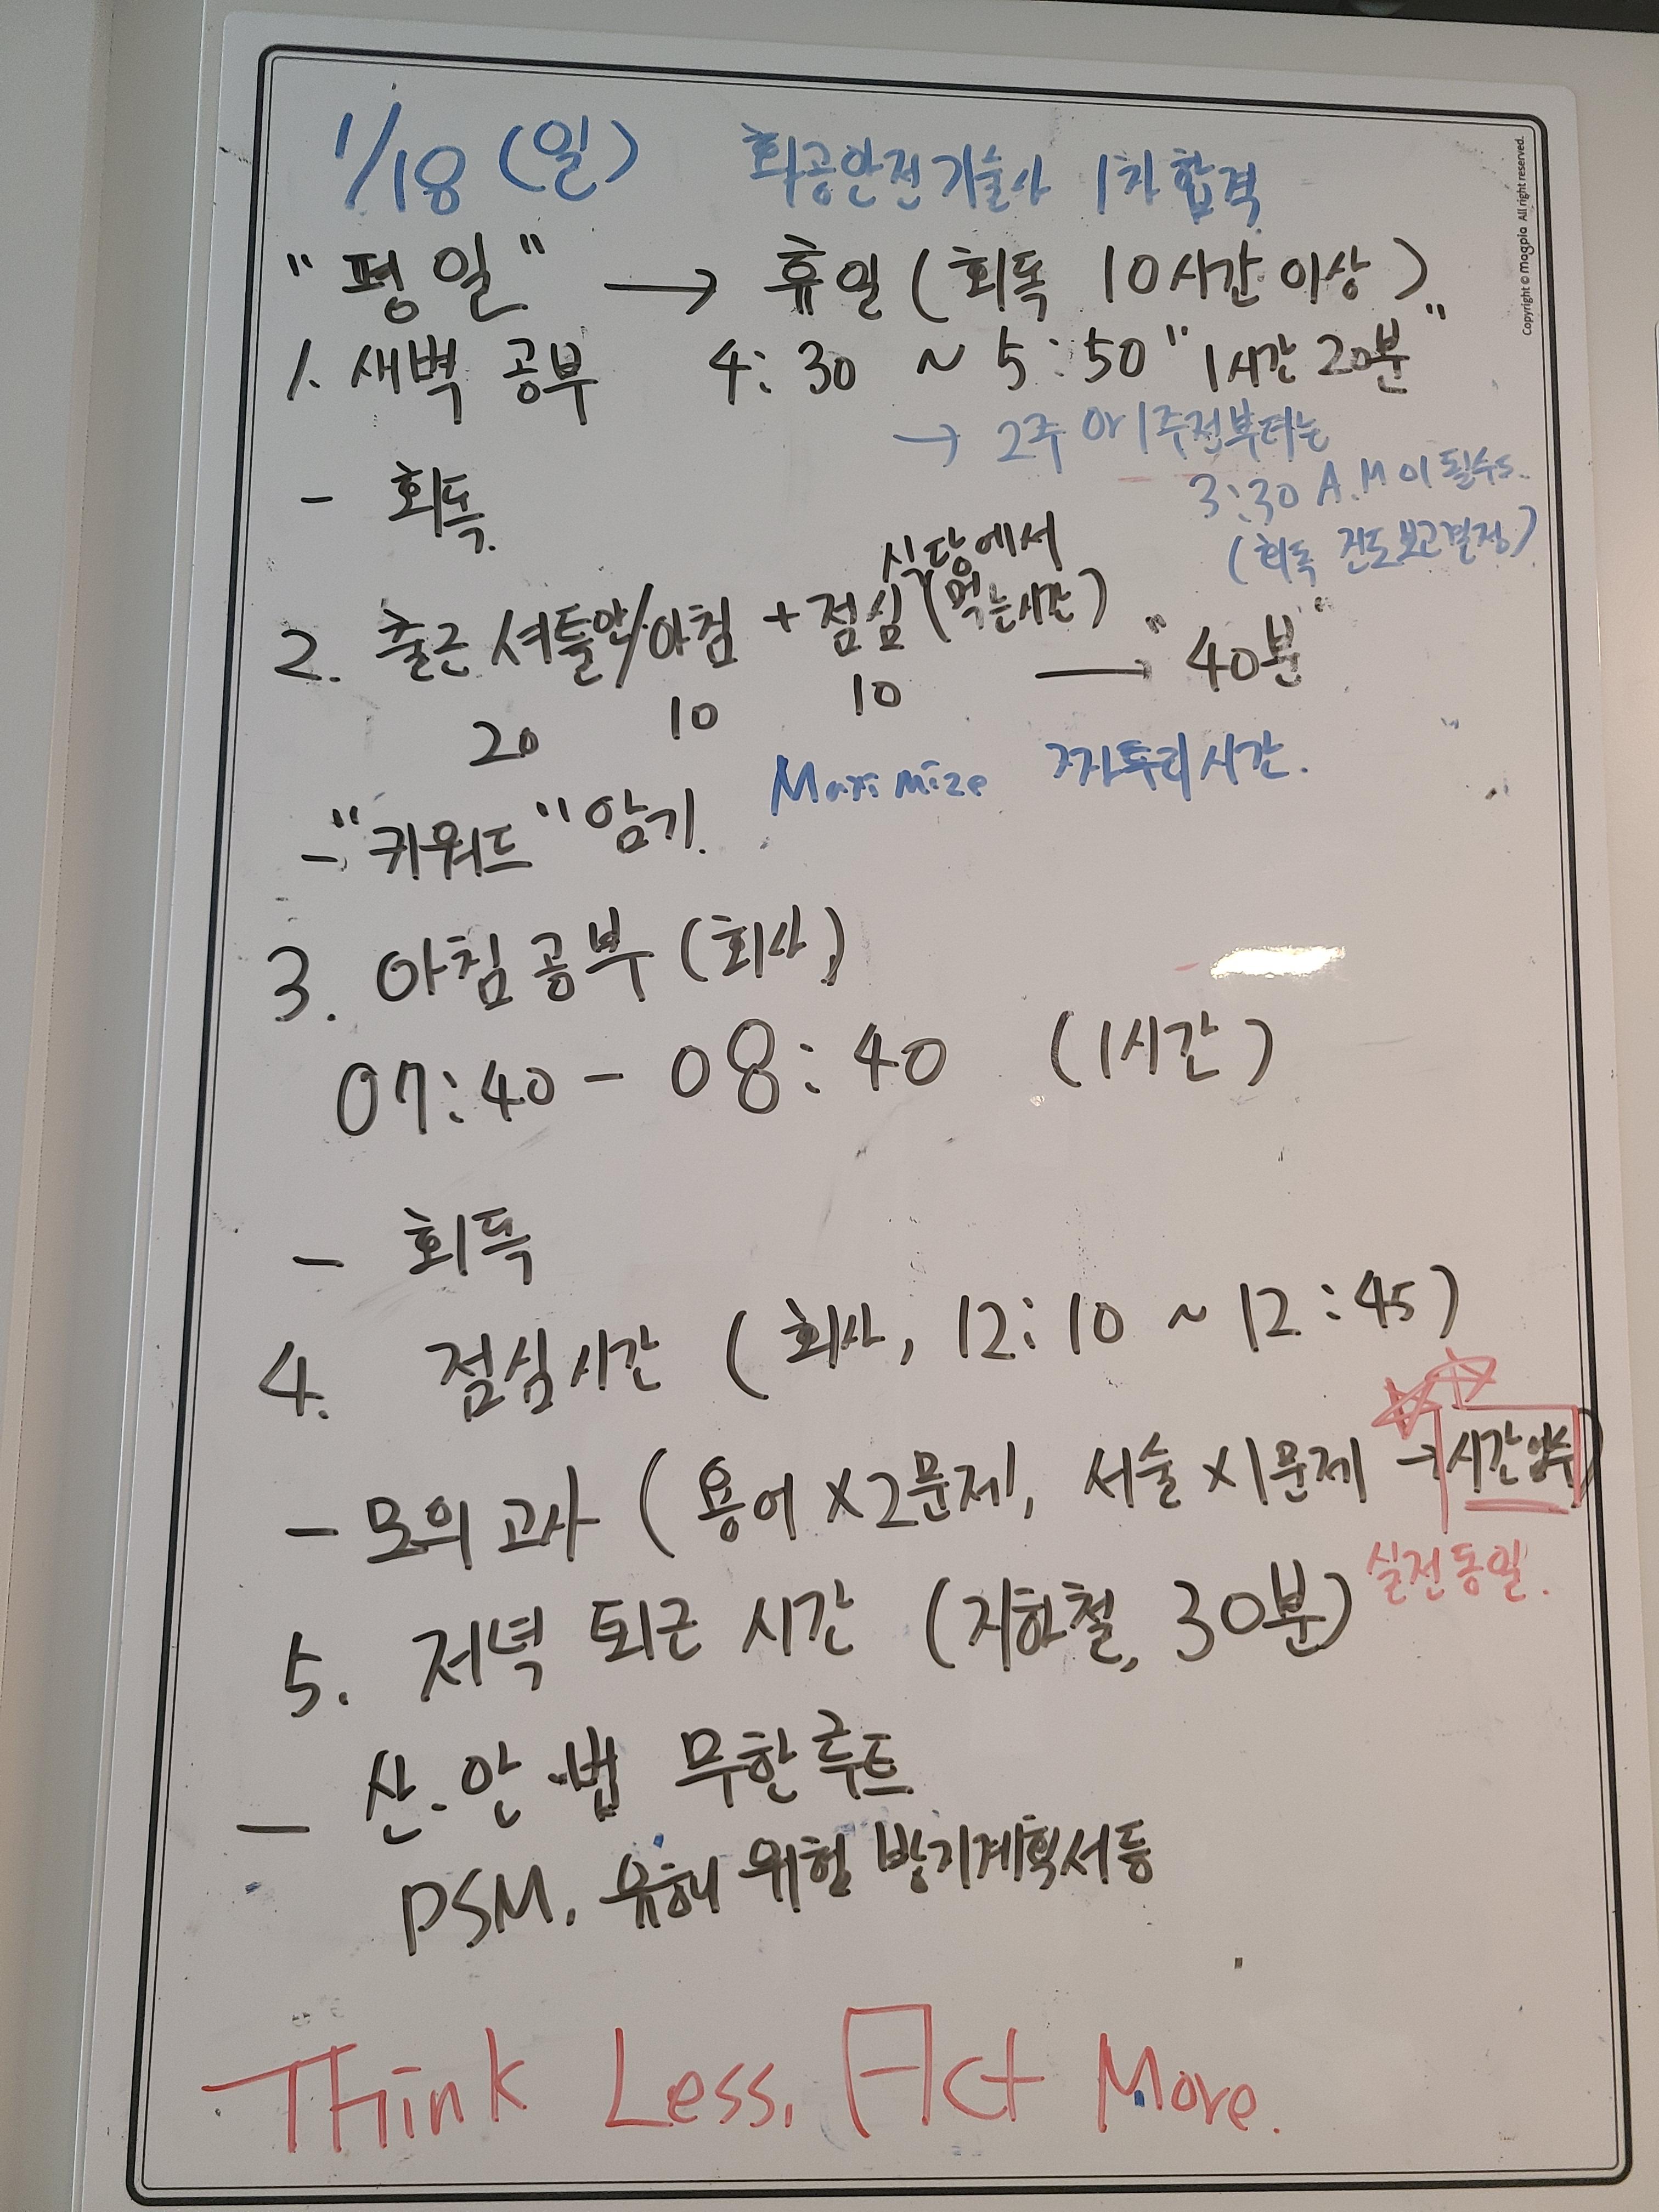 1/18 (일) 화공안전기술사 1차 합격
"평일" → 휴일 (회독 10시간 이상)
1. 새벽 공부 4:30 ~ 5:50 "1시간 20분"
→ 2주 or 1주전부터는
3:30 A.M 이 필수.
(회독 진도보고결정)
- 회독.
2. 출근 셔틀안/아침 + 점심 (식당에서 먹는시간) → "40분"
20 10 10
Maximize 짜투리시간.
- "키워드" 암기.
3. 아침 공부 (회사)
07:40 - 08:40 (1시간)
- 회독
4. 점심시간 (회사, 12:10 ~ 12:45)
- 모의고사 (용어 x2문제, 서술 x1문제 → 시간엄수)
실전동일.
5. 저녁 퇴근 시간 (지하철, 30분)
- 산.안.법 무한루트
PSM, 유해위험 방지계획서등
Think Less, Act More.
Copyright © magpia All right reserved.